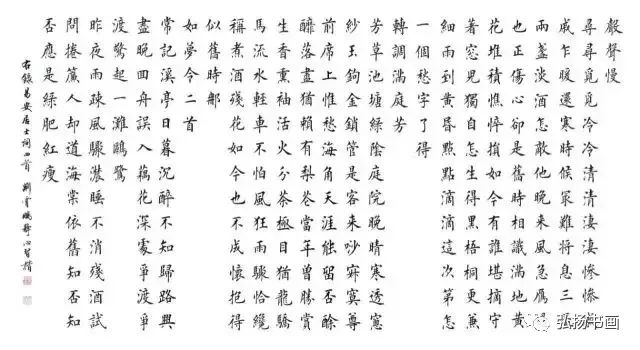 聲聲慢
尋尋覓覓冷冷清清淒淒慘慘戚
戚乍暖還寒時候冣難將息三盃
兩盞淡酒怎敵他晚來風急鴈過
也正傷心卻是舊時相識滿地黃
花堆積憔悴損如今有誰堪摘守
著窓兒獨自怎生得黑梧桐更兼
細雨到黃昏點點滴滴這次第怎
一個愁字了得
轉調滿庭芳
芳草池塘綠陰庭院晚晴寒透窓
紗玉鉤金鎖管是客來唦寂寞尊
前席上惟愁海角天涯能留否酴
醾落盡猶賴有梨花當年曾勝賞
生香熏袖活火分茶極目猶龍驕
馬流水輕車不怕風狂雨驟恰纔
稱煮酒殘花如今也不成懷抱得
似舊時那
如夢令二首
常記溪亭日暮沉醉不知歸路興
盡晚回舟誤入藕花深處爭渡爭
渡驚起一灘鷗鷺
昨夜雨疎風驟濃睡不消殘酒試
問捲簾人却道海棠依舊知否知
否應是綠肥紅瘦
右錄易安居士詞四首
弘扬书画